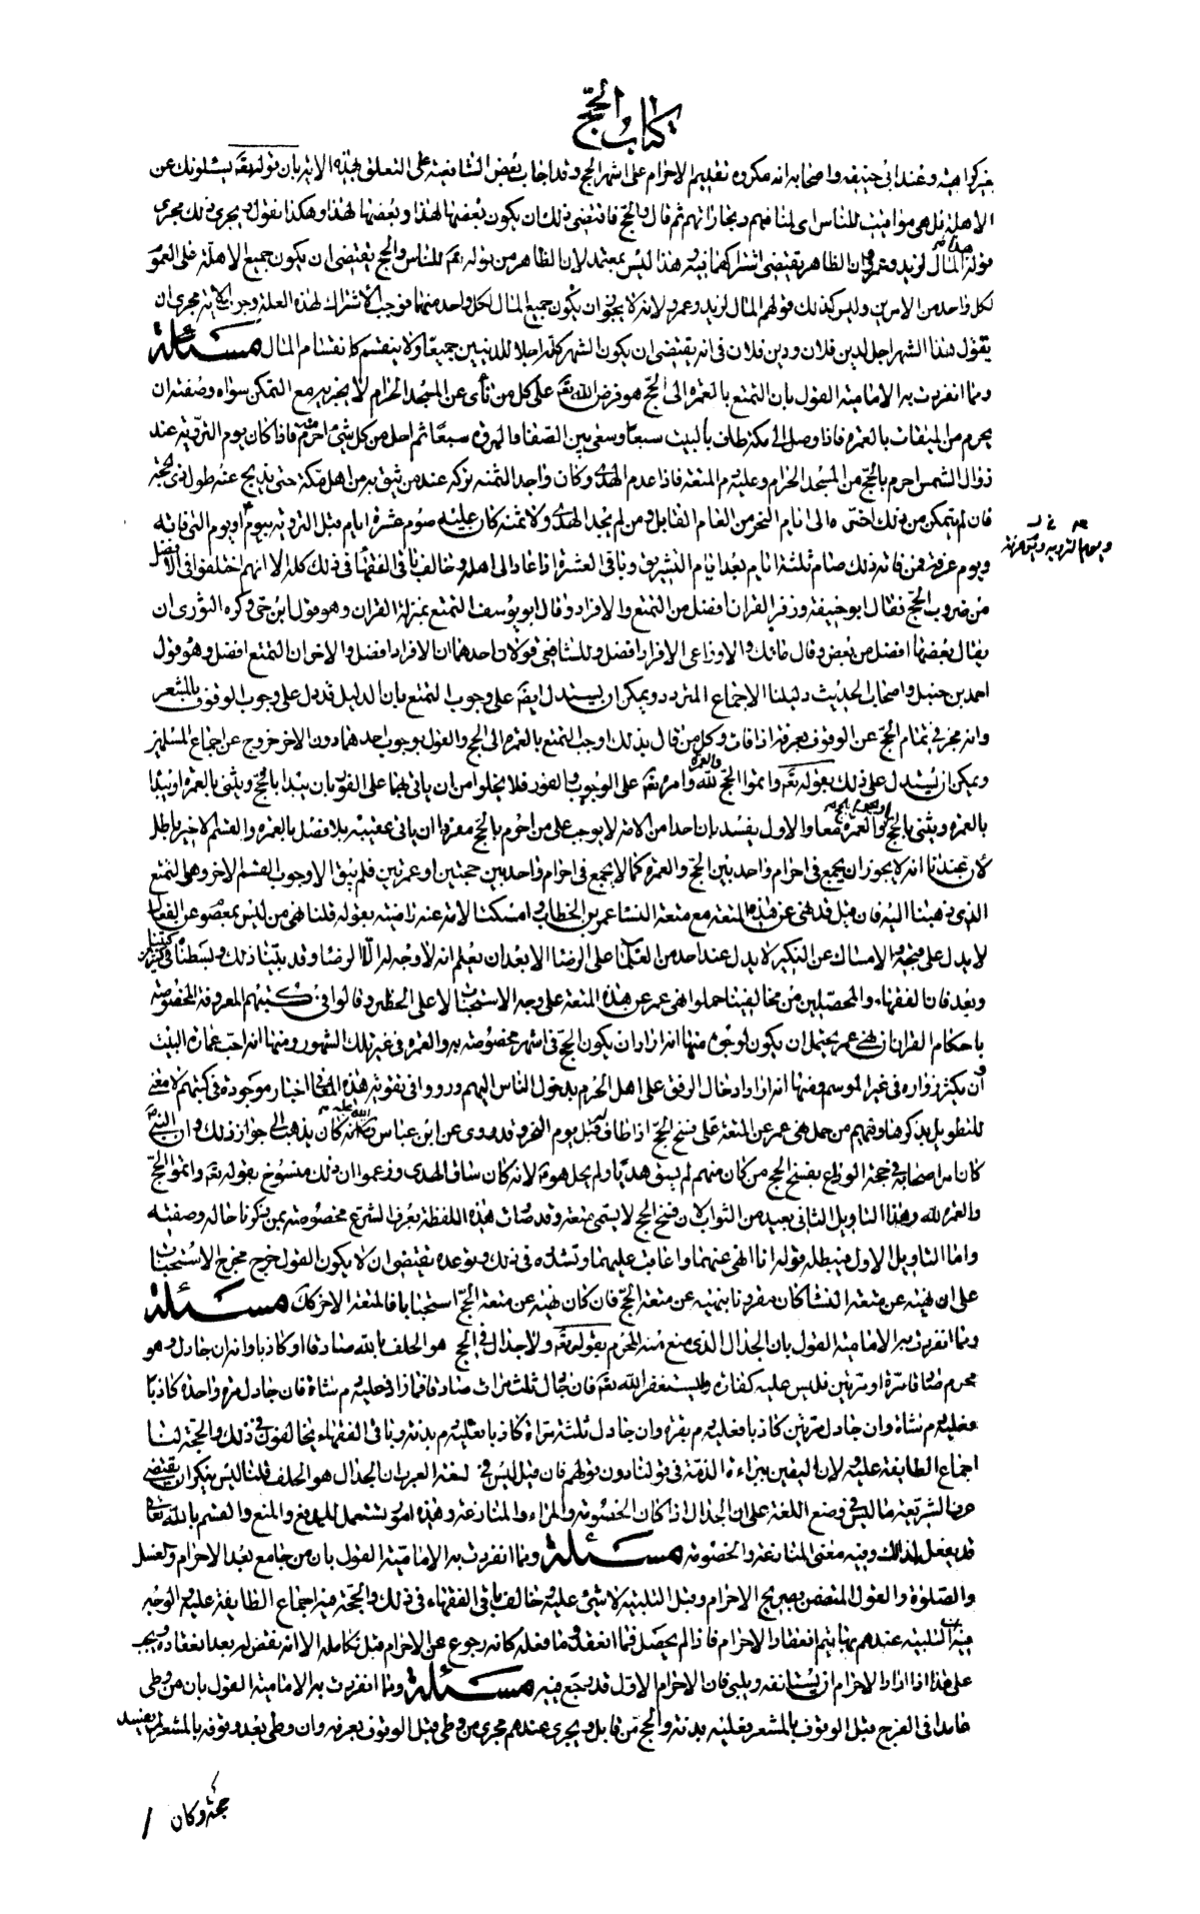 كتاب الحج
بغير كراهية وعند ابى حنيفة واصحابه انه مكروه تقديم الاحرام على اشهر الحج وقد اجاب بعض الشافعية على التعلق بهذه الاية بان قوله تعه يسئلونك عن
الاهلة قل هى مواقيت للناس اى لمنافعهم وتجاراتهم ثم قال والحج فاقتضى ذلك ان يكون بعضها لهذا وبعضها لهذا وهكذا نقول ويجرى ذلك مجرى
قوله هذا المال لزيد وعمرو فان الظاهر يقتضى اشتراكهما فيه وهذا ليس بمعتمد لان الظاهر من قوله تعه للناس والحج يقتضى ان يكون جميع الاهلة على العموم
لكل واحد من الامرين وليس كذلك قولهم المال لزيد وعمرو لانه لا يجوز ان يكون جميع المال لكل واحد منهما فوجب الاشتراك لهذه العلة وجرت الاية مجرى ان
يقول هذا الشهر اجل لدين فلان ودين فلان فى انه يقتضى ان يكون الشهر كله اجلا للدينين جميعا ولا ينقسم كانقسام المال مسئلة
ومما انفردت به الامامية القول بان التمتع بالعمرة الى الحج هو فرض الله تعه على كل من نأى عن المسجد الحرام لا يجزيه مع التمكن سواه وصفته ان
يحرم من الميقات بالعمرة فاذا وصل الى مكة طاف بالبيت سبعا وسعى بين الصفا والمروة سبعا ثم احل من كل شئ احرم منه فاذا كان يوم التروية عند
زوال الشمس احرم بالحج من المسجد الحرام وعليه دم المتعة فاذا عدم الهدى وكان واجدا لثمنه تركه عند من يثق به من اهل مكة حتى يذبح عنه طول ذى الحجة
فان لم يتمكن من ذلك اخره الى ايام النحر من العام القابل ومن لم يجد الهدى ولا ثمنه كان عليه صوم عشرة ايام قبل التروية بيوم ويوم التروية
ويوم عرفة فمن فاته ذلك صام ثلثة ايام بعد ايام التشريق وباقى العشرة اذا عاد الى اهله وخالف باقى الفقهاء فى ذلك كله الا انهم اختلفوا فى الافضل
من ضروب الحج فقال ابو حنيفة وزفر القران افضل من التمتع والافراد وقال ابو يوسف التمتع بمنزلة القران وهو قول ابن حى وكره الثورى ان
يقال بعضها افضل من بعض وقال مالك والاوزاعى الافراد افضل وللشافعى قولان احدهما ان الافراد افضل والاخر ان التمتع افضل وهو قول
احمد بن حنبل واصحاب الحديث دليلنا الاجماع المتردد ويمكن ان يستدل ايضه على وجوب التمتع بان الدليل قد دل على وجوب الوقوف بالمشعر
وانه مجز فى تمام الحج عن الوقوف بعرفة اذا فات وكل من قال بذلك اوجب التمتع بالعمرة الى الحج والقول بوجوب احدهما دون الاخر خروج عن اجماع المسلمين
ويمكن ان يستدل على ذلك بقوله تعه واتموا الحج والعمرة لله وامره تعه على الوجوب والفور فلا يخلوا من ان ياتى بهما على الفور بان يبتدا بالحج ويثنى بالعمرة او يبتدا
بالعمرة ويثنى بالحج او يحرم بالحج والعمرة معا والاول يفسد بان احدا من الامة لا يوجب على من احرم بالحج مفردا ان ياتى عقيبه بلا فصل بالعمرة والقسم الاخير باطل
لان عندنا انه لا يجوز ان يجمع فى احرام واحد بين الحج والعمرة كما لا يجمع فى احرام واحد بين حجتين او عمرتين فلم يبق الا وجوب القسم الاخر وهو التمتع
الذى ذهبنا اليه فان قيل قد نهى عن هذه المتعة مع متعة النساء عمر بن الخطاب وامسكت الامة عنه راضية بقوله قلنا نهى من ليس بمعصوم عن الفعل
لا يدل على قبحه والامساك عن النكير لا يدل عند احد من العلماء على الرضا الا بعد ان يعلم انه لا وجه له الا الرضا وقد بينا ذلك وبسطناه فى كثير من كتبنا
وبعد فان الفقهاء والمحصلين من مخالفينا حملوا نهى عمر عن هذه المتعة على وجه الاستحباب لا على الحظر وقالوا فى كتبهم المعروفة المخصوصة
باحكام القران ان نهى عمر يحتمل ان يكون لوجوه منها انه اراد ان يكون الحج فى اشهر مخصوصة به والعمرة فى غير تلك الشهور ومنها انه احب عمارة البيت
وان يكثر زواره فى غير الموسم ومنها انه اراد ادخال الرفق على اهل الحرم بدخول الناس اليهم ورووا فى تقوية هذه المعانى اخبارا موجودة فى كتبهم لا معنى
للتطويل بذكرها وفيهم من حمل نهى عمر عن المتعة على فسخ الحج اذا طاف له قبل يوم النحر وقد روى عن ابن عباس ره انه كان يذهب الى جواز ذلك وان النبى صلى الله عليه
كان امر اصحابه فى حجة الوداع بفسخ الحج من كان منهم لم يسق هديا ولم يحل هو ع لانه كان ساق الهدى وزعموا ان ذلك منسوخ بقوله تعه واتموا الحج
والعمرة لله وهذا التاويل الثانى بعيد من الثواب لان فسخ الحج لا يسمى متعة وقد صارت هذه اللفظة بعرف الشرع مخصوصة بمن ذكرنا حاله وصفته
واما التاويل الاول فيبطله قوله انا انهى عنهما واعاقب عليهما وتشدده فى ذلك وتوعده يقتضى ان لا يكون القول خرج مخرج الاستحباب
على ان نهيه عن متعة النساء كان مقرونا بنهيه عن متعة الحج فان كان نهيه عن متعة الحج استحبابا فالمتعة الاخرى كك مسئلة
ومما انفردت به الامامية القول بان الجدال الذى منع منه المحرم بقوله تعه ولا جدال فى الحج هو الحلف بالله صادقا او كاذبا وانه ان جادل وهو
محرم صادقا مرة او مرتين فليس عليه كفارة وليستغفر الله تعه فان جادل ثلث مرات صادقا فما زاد فعليه دم شاة فان جادل مرة واحدة كاذبا
فعليه دم شاة وان جادل مرتين كاذبا فعليه دم بقرة وان جادل ثلثة مراة كاذبا فعليه دم بدنة وباقى الفقهاء يخالفون فى ذلك والحجة لنا
اجماع الطايفة عليه ولان اليقين ببراءة الذمة فى قولنا دون قولهم فان قيل ليس فى لغة العرب ان الجدال هو الحلف قلنا ليس ينكر ان يقتضى
عرف الشريعة ما ليس فى وضع اللغة على ان الجدال اذا كان الخصومة والمراء والمنازعة وهذه امور تستعمل للدفع والمنع والقسم بالله تعالى
قد يفعل لذلك وفيه معنى المنازعة والخصومة مسئلة ومما انفردت به الامامية القول بان من جامع بعد الاحرام والغسل
والصلوة والقول المتضمن بصريح الاحرام وقبل التلبية لا شئ عليه وخالف باقى الفقهاء فى ذلك والحجة فيه اجماع الطايفة عليه والوجه
فيه ان التلبية عندهم بها يتم انعقاد الاحرام فاذا لم يحصل فما انعقد وما فعله كانه رجوع عن الاحرام قبل تكامله لا انه نقض له بعد انعقاده ويجب
على هذا اذا اراد الاحرام ان يستانفه ويلبى فان الاحرام الاول قد رجع فيه مسئلة ومما انفردت به الامامية القول بان من وطى
عامدا فى الفرج قبل الوقوف بالمشعر فعليه بدنة والحج من قابل ويجرى عندهم مجرى من وطى قبل الوقوف بعرفة وان وطى بعد وقوفه بالمشعر لم يفسد
حجه وكان